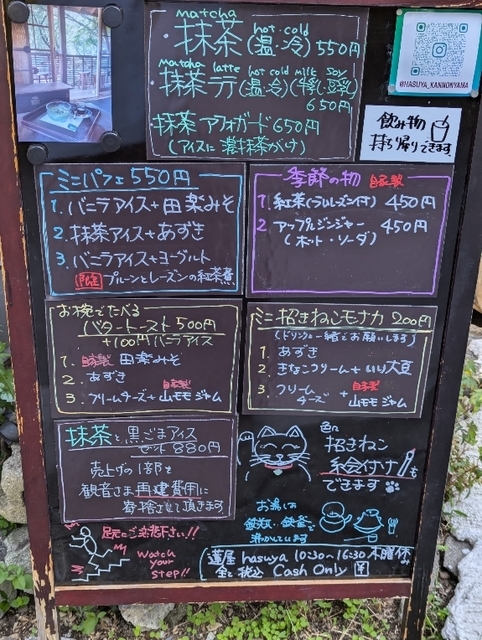 matcha
・抹茶 hot cold (温・冷) 550円
matcha latte hot cold milk soy
抹茶ラテ(温冷)(牛乳・豆乳)
650円
抹茶アフォガード 650円
(アイスに濃抹茶がけ)
@HASUYA_KANNONYAMA
飲み物
持ち帰りできます。
ミニパフェ 550円
1. バニラアイス+田楽みそ
2. 抹茶アイス+あずき
3. バニラアイス+ヨーグルト
限定 プルーンとレーズンの紅茶煮
季節の物 自家製
1. 紅茶(ラムレーズン付) 450円
2 アップルジンジャー 450円
(ホット・ソーダ)
お椀でたべる
バタートースト 500円
+100円バニラアイス
1. 自家製 田楽みそ
2. あずき
3. クリームチーズ+自家製 山モモジャム
ミニ招きねこモナカ 200円
(ドリンクと一緒でお願いします)
1. あずき
2. きなこクリーム+いり大豆
3. クリームチーズ+自家製 山モモジャム
抹茶と黒ごまアイス
セット 880円
売上げの1部を
観音さま再建費用に
寄捨させて頂きます
色に
招きねこ
絵付け
できます
お湯は
鉄瓶・鉄釜で
沸かしています
足元ご注意下さい!!
Watch
your
step!!
蓮屋 hasuya 10:30~16:30 木曜休み
全て税込 Cash Only